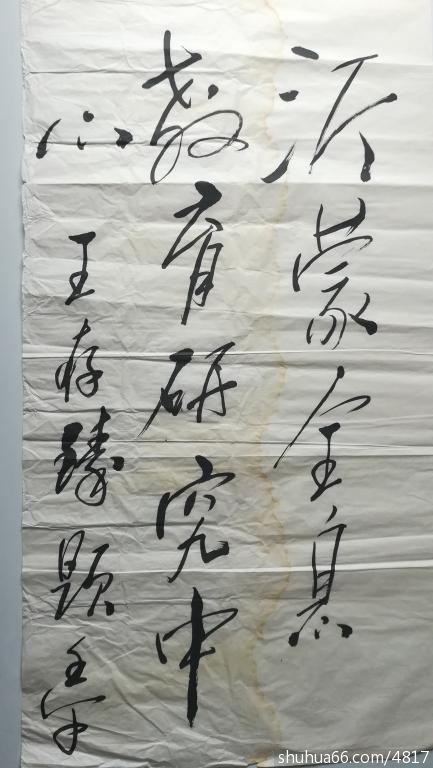 沂蒙全息
教育研究中
心 王存臻题 壬午
shuhua66.com/4817